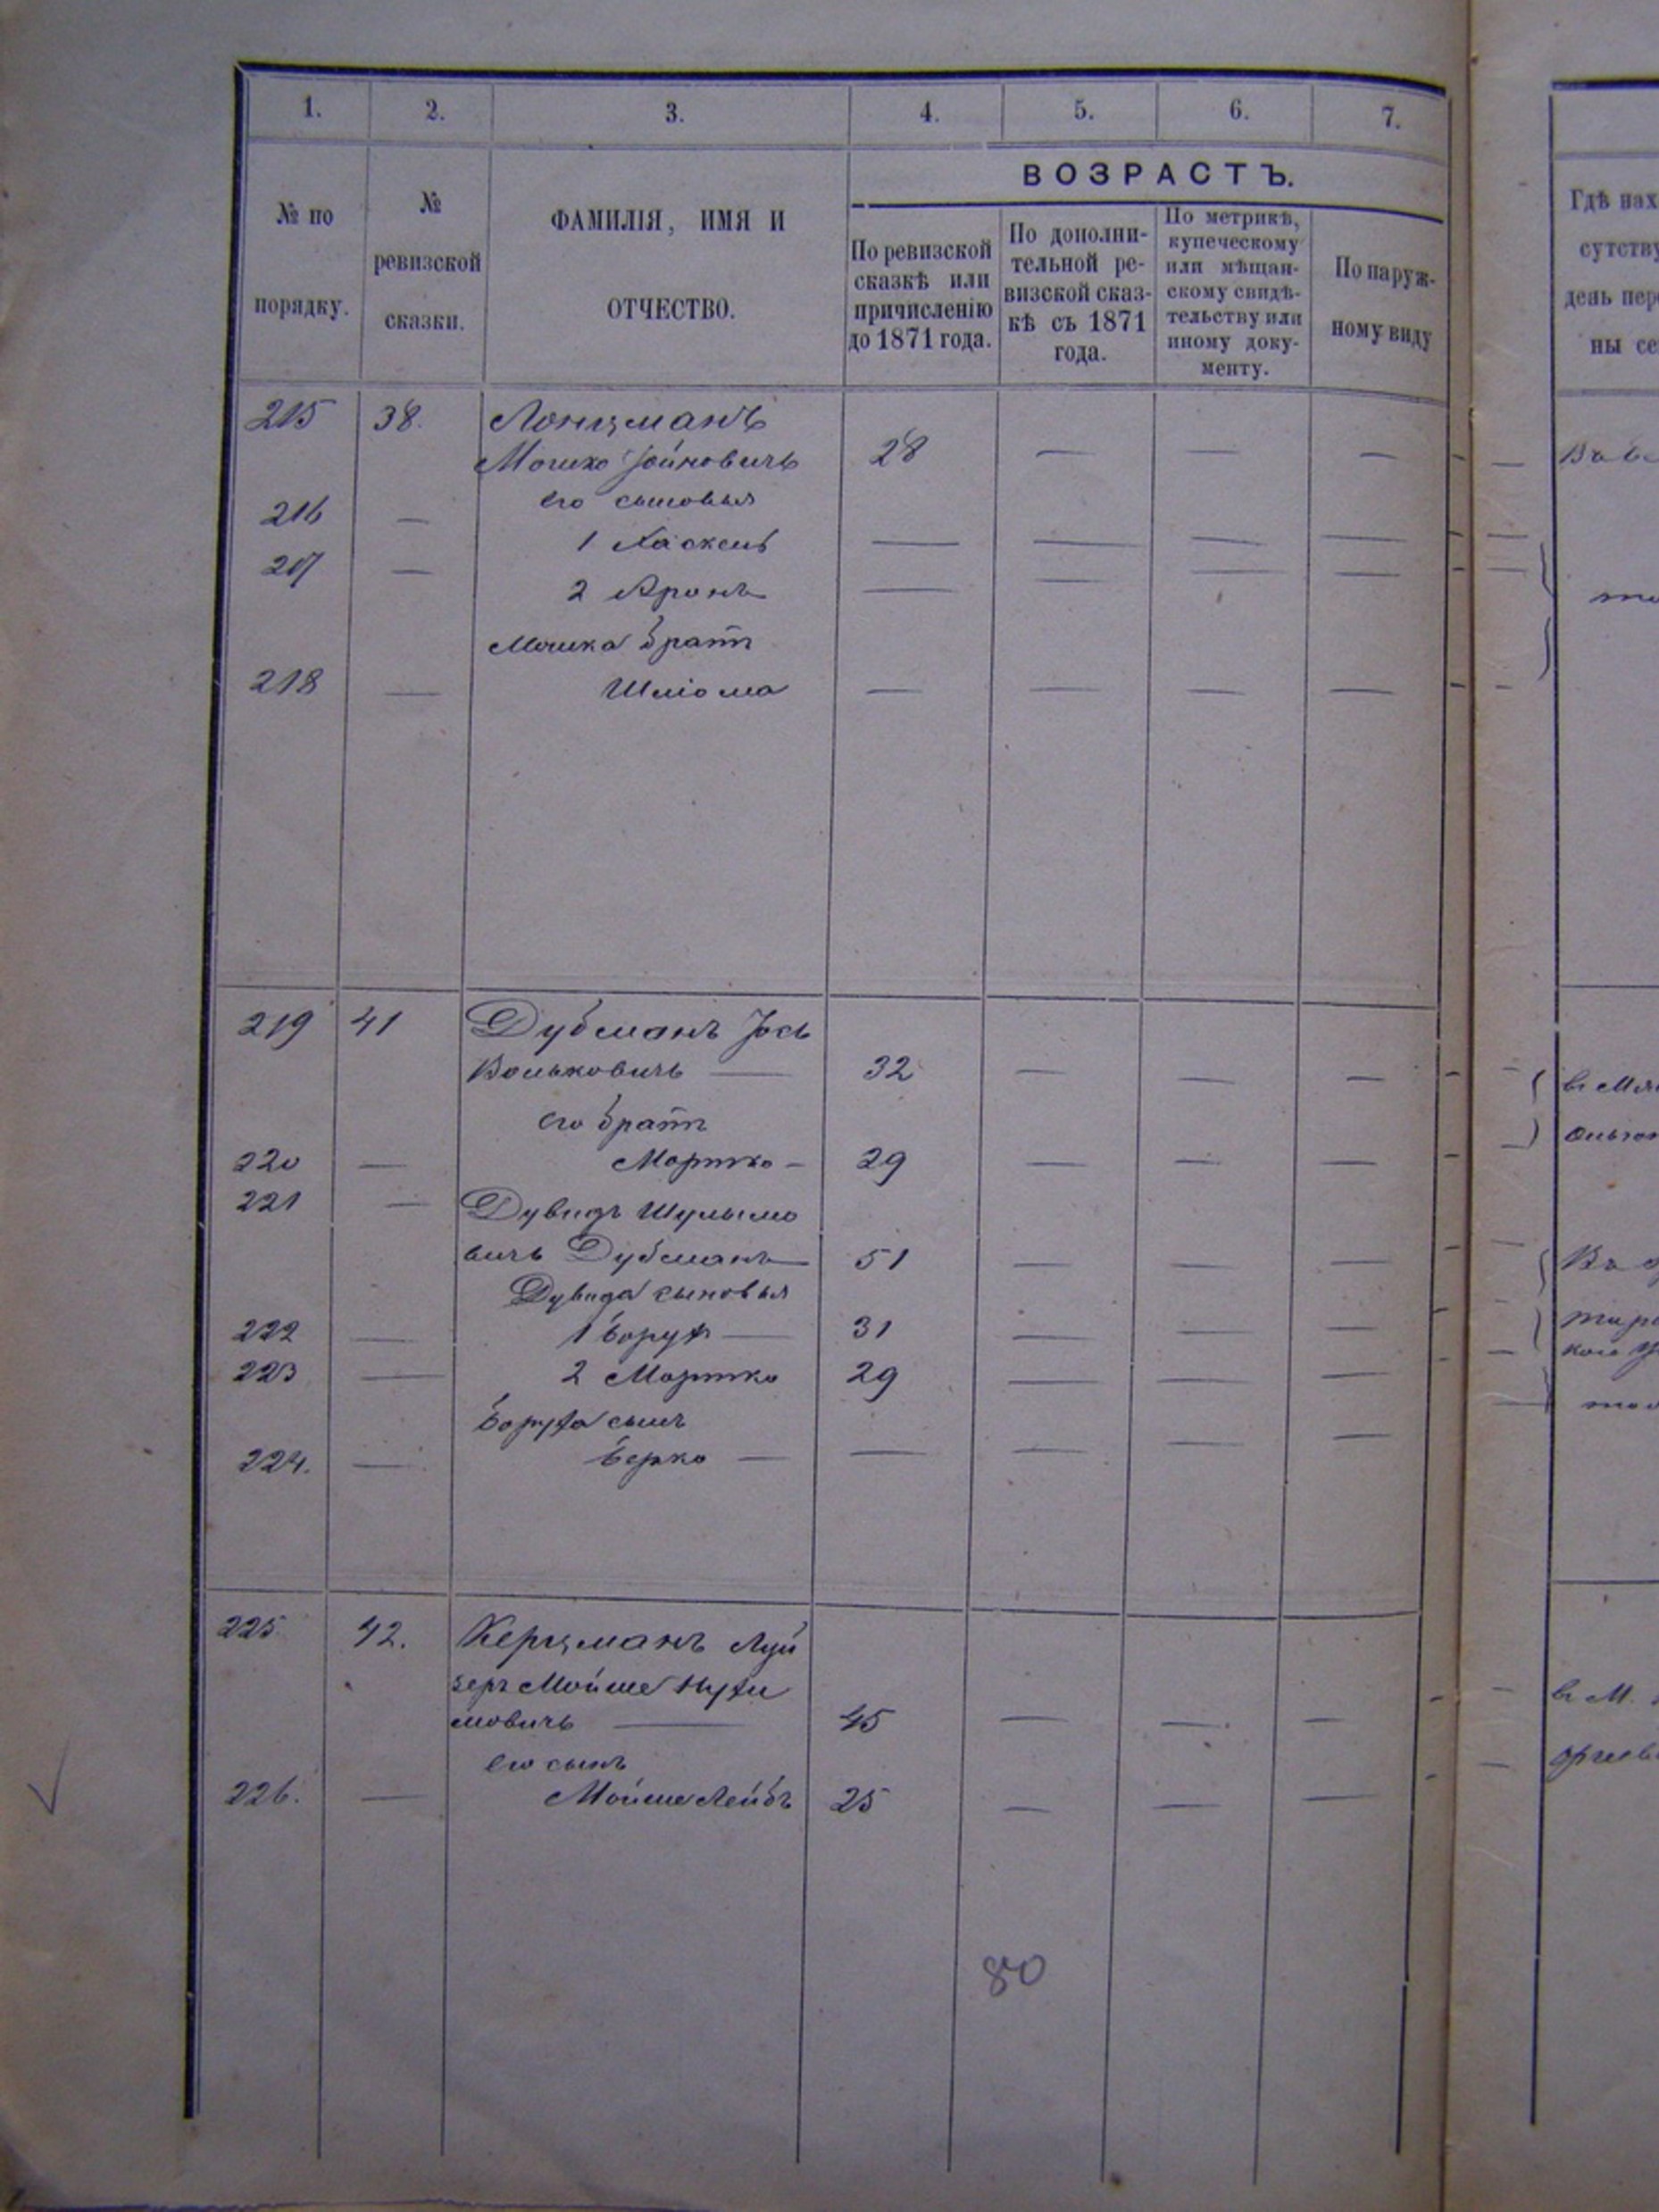 1. 2. 3. 4. 5. 6. 7.
№ по порядку.
№ ревизской сказки.
ФАМИЛІЯ, ИМЯ И
ОТЧЕСТВО.
ВОЗРАСТЪ.
По ревизской
сказкѣ или
причисленію
до 1871 года.
По дополни-
тельной ре-
визской сказ-
кѣ съ 1871
года.
По метрикѣ,
купеческому
или мѣщан-
скому свидѣ-
тельству или
иному доку-
менту.
По наруж-
ному виду
Гдѣ нах
сутству
день пер
ны се
215 38. Лонцманъ
Мошко Іойновичъ 28 — — —
его сыновья
216 — 1 Хаскель — — — —
217 — 2 Аронъ — — — —
Мошка братъ
218 — Шліома — — — —
219 41 Дубманъ Іось
Вольковичъ — 32 — — —
его братъ
220 — Мортко — 29 — — —
221 — Дувидъ Шулимо
вичъ Дубманъ 51 — — —
Дувида сыновья
222 — 1 Борух — 31 — — —
223 — 2 Мортко 29 — — —
Боруха сынъ
224. — Берко — — — — —
225 42. Керцманъ Луй
зеръ Мойше Нухи
мовичъ — 45 — — —
его сынъ
226. — Мойше Лейбъ 25 — — —
80